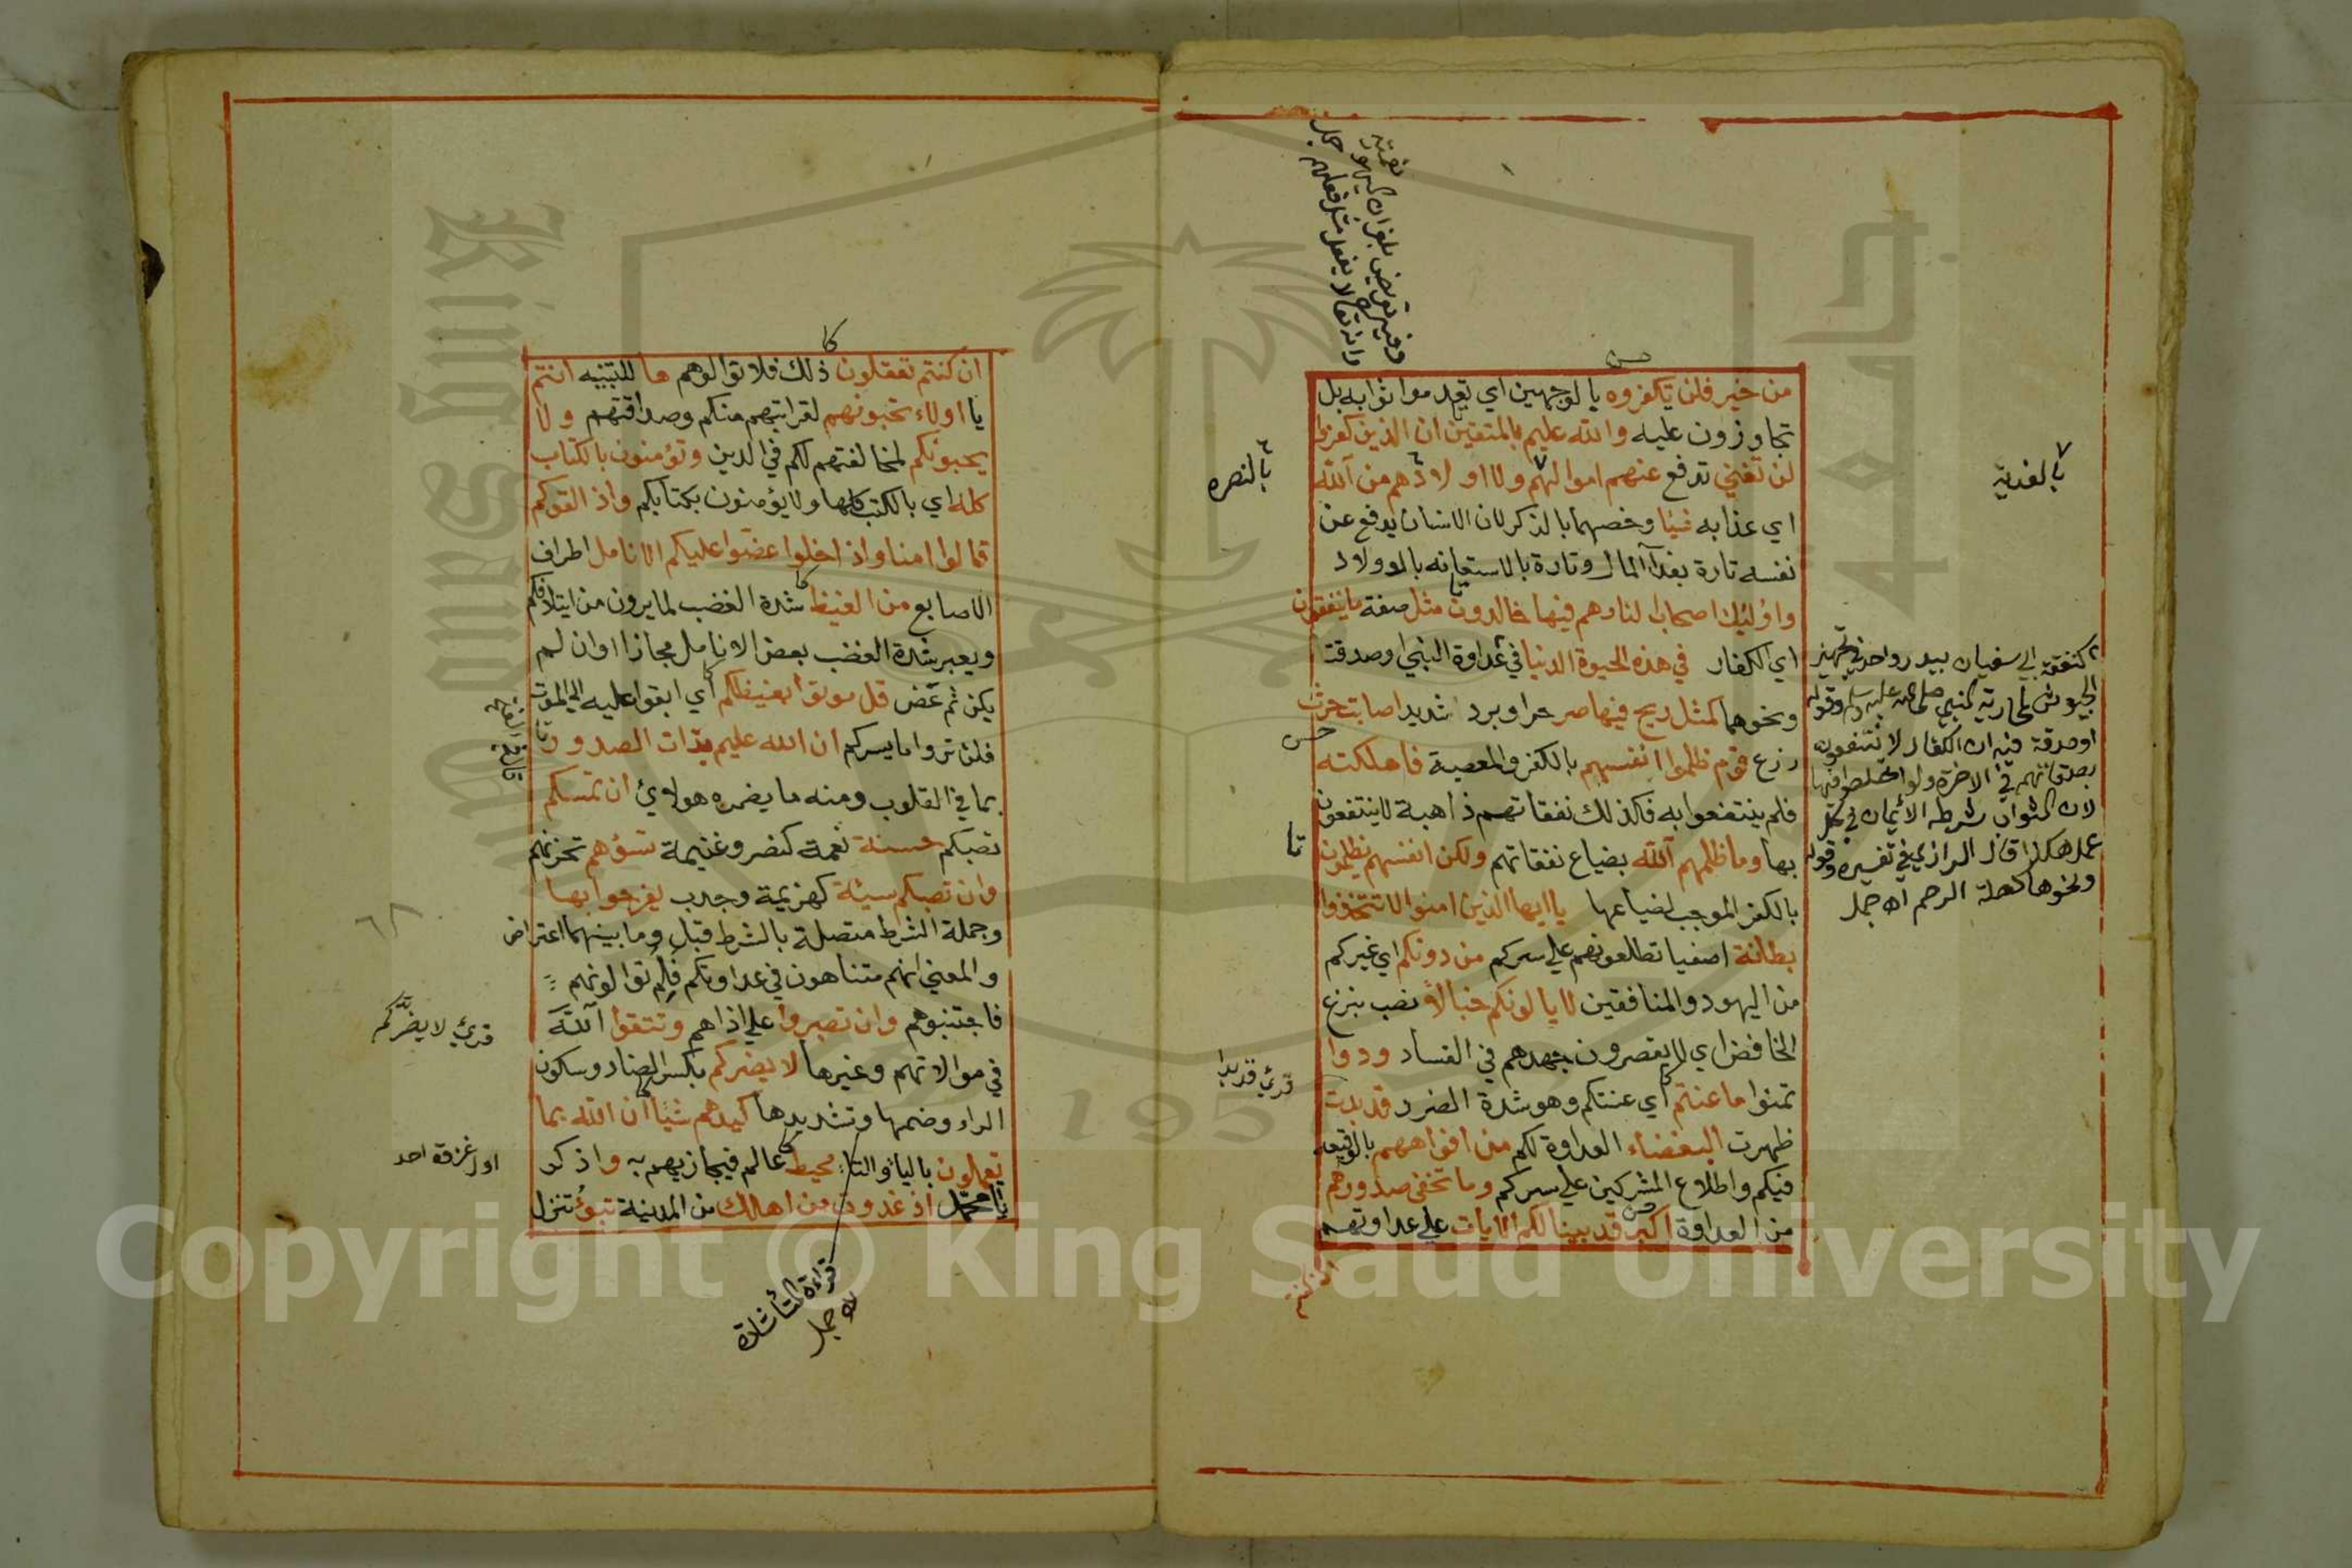 من خير فلن تكفروه بالوجهين اي تعدموا ثوابه بل
تجاوزون عليه والله عليم بالمتقين ان الذين كفروا
لن تغني تدفع عنهم اموالهم ولا اولادهم من الله
اي عذابه شيئا وخصهما بالذكر لان الانسان يدفع عن
نفسه تارة بفداء المال وتارة بالاستعانه بالاولاد
واولئك اصحاب النار هم فيها خالدون مثل صفة ما ينفقون
اي الكفار في هذه الحيوة الدنيا في عداوة النبي او صدقت
ونحوهما كمثل ريح فيها صر حر او برد شديد اصابت حرث
زرع قوم ظلموا انفسهم بالكفر والمعصية فاهلكته
فلم ينتفعوا به فكذلك نفقاتهم ذاهبة لا ينتفعون
بها وما ظلمهم الله بضياع نفقاتهم ولكن انفسهم يظلمون
بالكفر الموجب لضياعها يا ايها الذين امنوا لا تتخذوا
بطانة اصفيا تطلعونهم علي سركم من دونكم اي غيركم
من اليهود والمنافقين لا يالونكم خبالا نصب بنزع
الخافض اي لا يقصرون جهدهم في الفساد ودوا
تمنوا ما عنتم اي عنتكم وهو شدة الضرر قد بدت
ظهرت البغضاء العداوة لكم من افواههم بالوقيعه
فيكم واطلاع المشركين علي سركم وما تخفي صدورهم
من العداوة اكبر قد بينا لكم الايات علي عداوتهم
ان كنتم
حسن
وفيه تعريض بان اليهود
وانه تعالى لا يفعل مثل فعلهم جمل
بالفدية
بالنصره
كنفقة ابي سفيان ببدر واحد في تجهيز
الجيوش لمحاربة النبي صلى الله عليه وسلم وقوله
او صدقة فيه ان الكفار لا ينتفعون
بصدقاتهم في الاخرة ولو اخلصوا فيها
لان الثواب شرطه الايمان في كل
عمل هكذا قال الرازي في تفسيره وقوله
ونحوها كصلة الرحم اه جمل
حسن
تا
قرئ قد بدا
ان كنتم تعقلون ذلك فلا توالوهم ها للتنبيه انتم
يا اولاء تحبونهم لقرابتهم منكم وصداقتهم ولا
يحبونكم لمخالفتهم لكم في الدين وتؤمنون بالكتاب
كله اي بالكتب كلها ولا يؤمنون بكتابكم واذا لقوكم
قالوا امنا واذا خلوا عضوا عليكم الانامل اطراف
الاصابع من الغيظ شدة الغضب لما يرون من ايتلافكم
ويعبر بشدة الغضب بعض الانامل مجازا وان لم
يكن ثم عض قل موتوا بغيظكم اي ابقوا عليه الي الموت
فلن تروا ما يسركم ان الله عليم بذات الصدور
بما في القلوب ومنه ما يضمره هولاي ان تمسكم
تصبكم حسنة نعمة كنصر وغنيمة تسؤهم تحزنهم
وان تصبكم سيئة كهزيمة وجدب يفرحوا بها
وجملة الشرط متصلة بالشرط قبل وما بينهما اعتراض
والمعني انهم متناهون في عداوتكم فلم توالونهم
فاجتنبوهم وان تصبروا علي اذاهم وتتقوا الله
في موالاتهم وغيرها لا يضركم بكسر الضاد وسكون
الراء وضمها وتشديدها كيدهم شيئا ان الله بما
تعملون بالياء والتاء محيط عالم فيجازيهم به واذكر
يا محمد اذ غدوت من اهلك من المدينة تبوئ تنزل
كا
قرئ لا يضركم
اول غزوة احد
قراءة التاء شاذة
اه جمل
King Saud
1957
Copyright © King Saud University